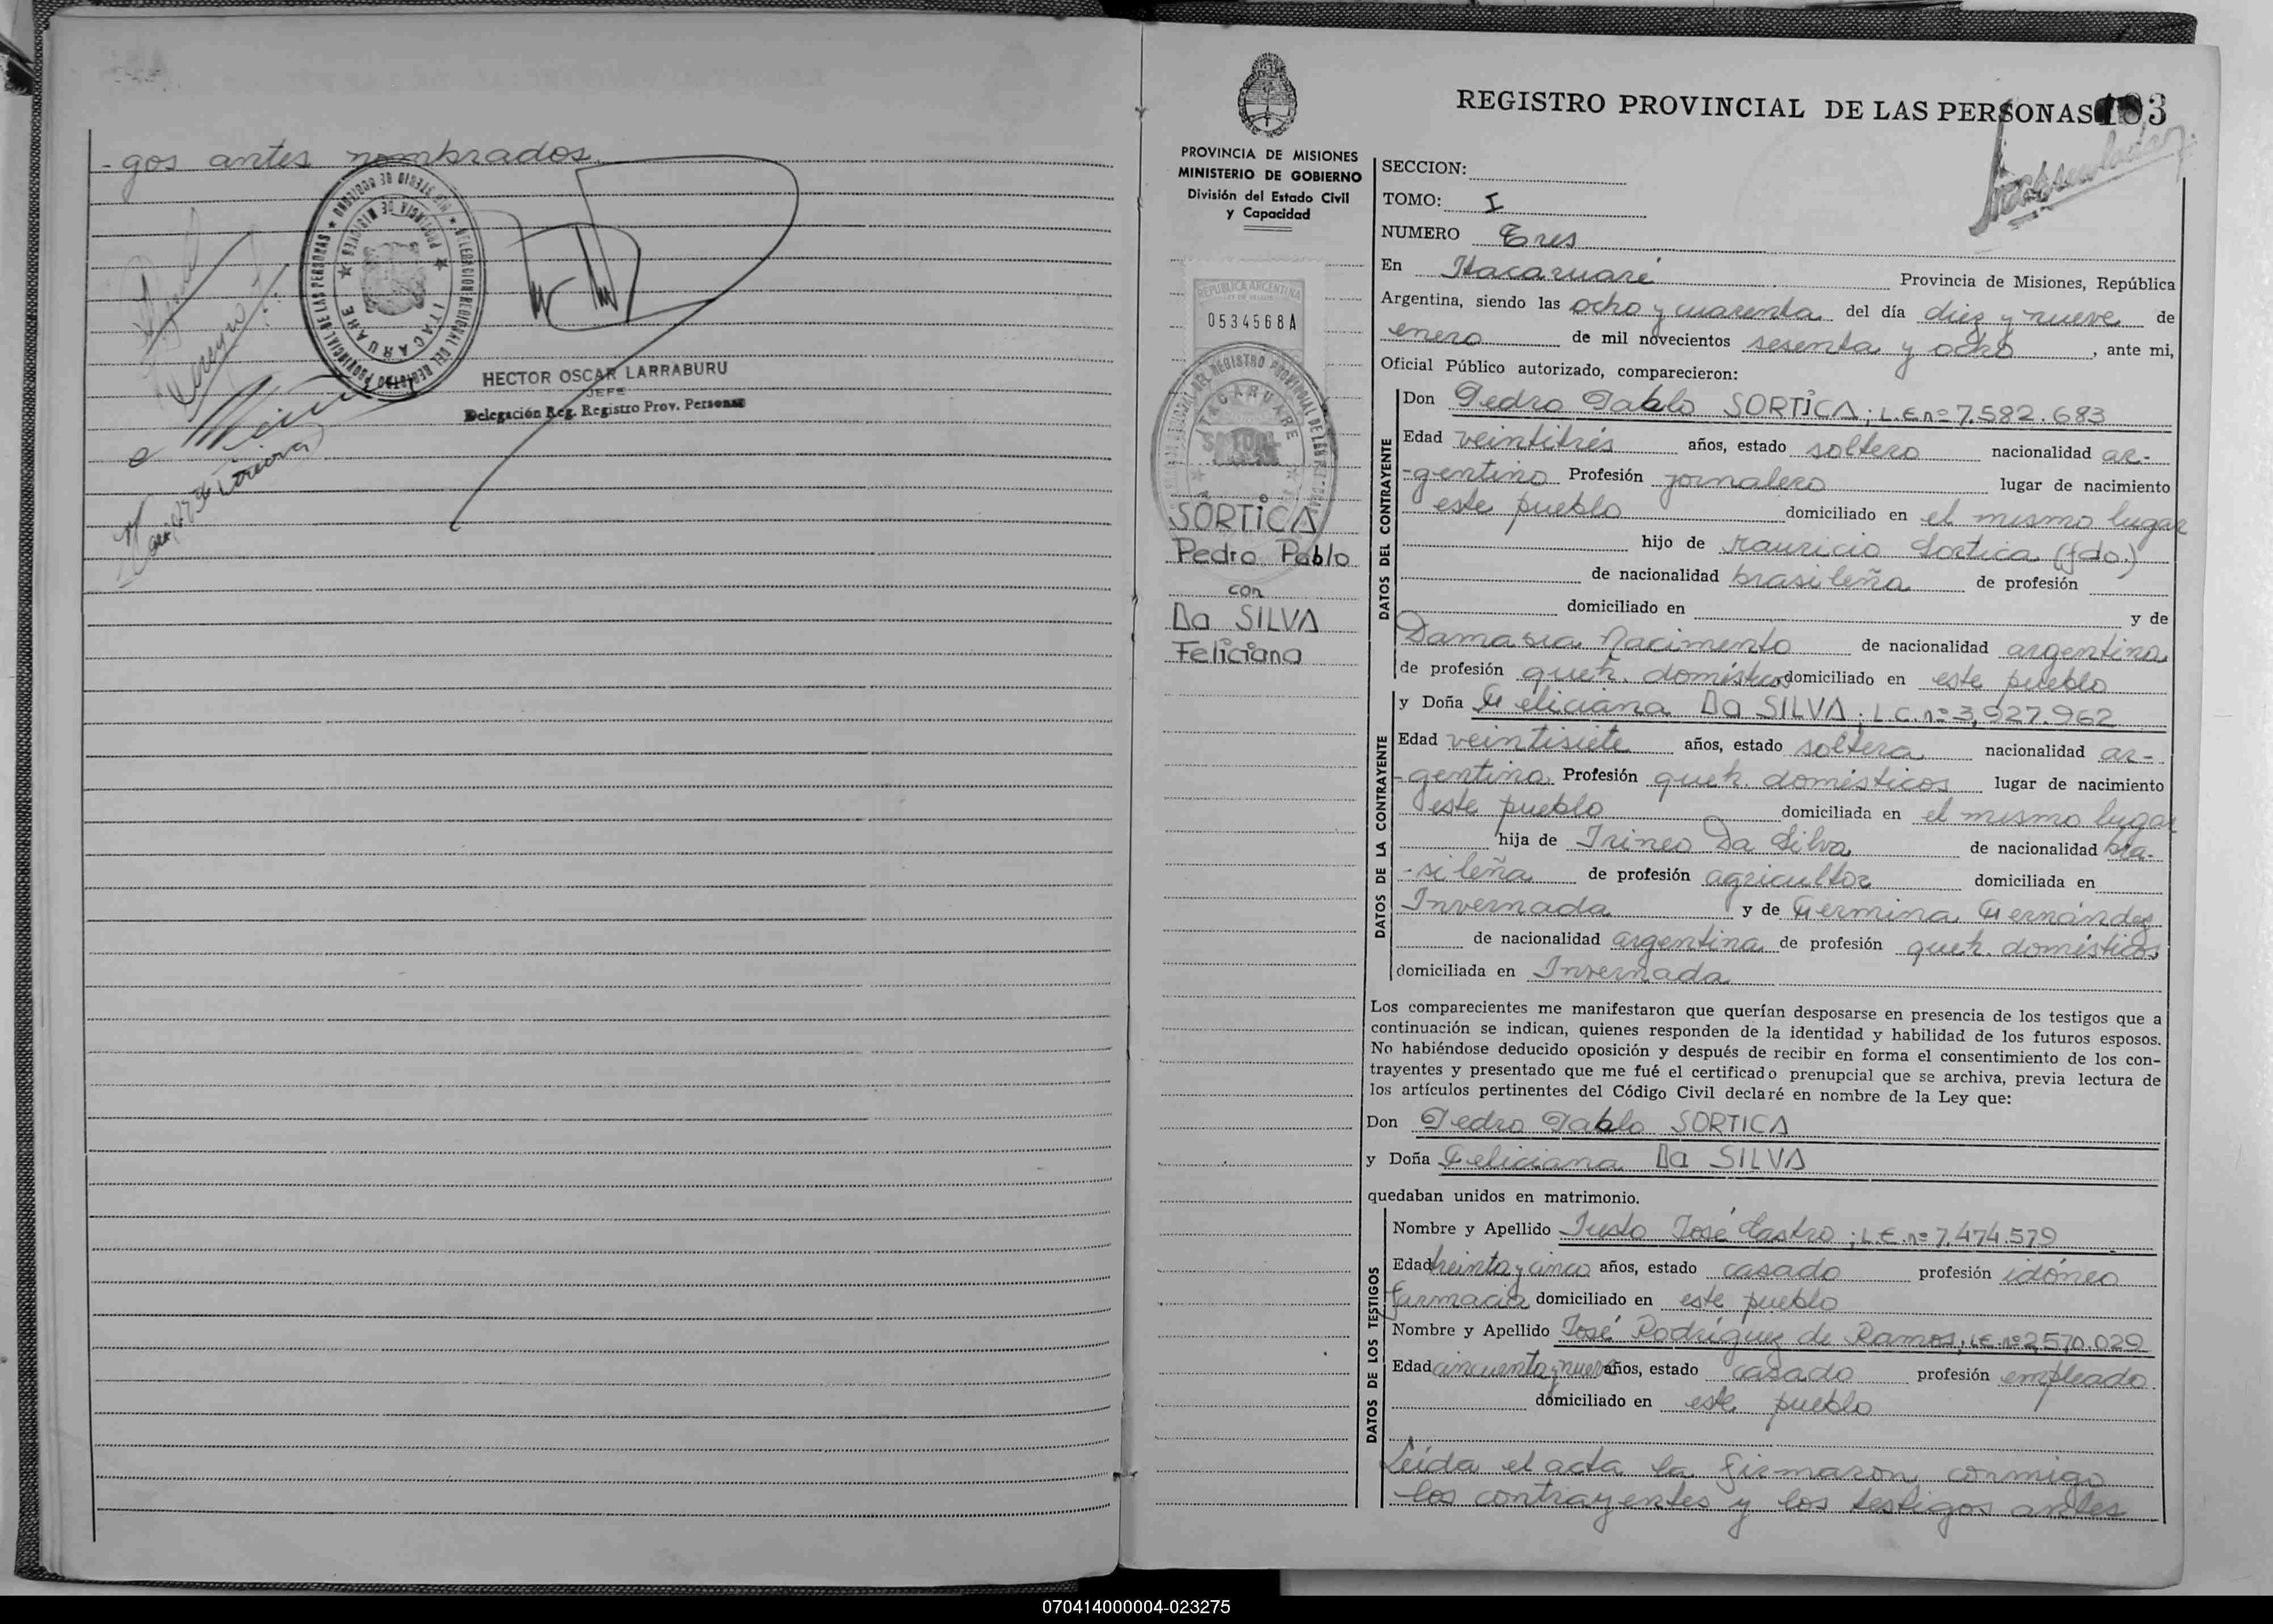 -gos antes nombrados.
HECTOR OSCAR LARRABURU
JEFE
Delegación Reg. Registro Prov. Personas
PROVINCIA DE MISIONES
MINISTERIO DE GOBIERNO
División del Estado Civil
y Capacidad
REPUBLICA ARGENTINA
0534568A
SORTICA
Pedro Pablo
con
Da SILVA
Feliciana
REGISTRO PROVINCIAL DE LAS PERSONAS 183
SECCION:
TOMO: I
NUMERO Tres
En Itacaruaré Provincia de Misiones, República
Argentina, siendo las ocho y cuarenta del día diez y nueve de
enero de mil novecientos sesenta y ocho, ante mi,
Oficial Público autorizado, comparecieron:
DATOS DEL CONTRAYENTE
Don Pedro Pablo SORTICA; L.E.nº 7.582.683
Edad veintitrés años, estado soltero nacionalidad ar-
-gentino Profesión jornalero lugar de nacimiento
este pueblo domiciliado en el mismo lugar
hijo de Mauricio Sortica (fdo.)
de nacionalidad brasileña de profesión
domiciliado en y de
Damasia Nacimento de nacionalidad argentina
de profesión queh. domésticos domiciliado en este pueblo
DATOS DE LA CONTRAYENTE
y Doña Feliciana Da SILVA; L.C.nº 3,927.962
Edad veintisiete años, estado soltera nacionalidad ar-
-gentina Profesión queh. domésticos lugar de nacimiento
este pueblo domiciliada en el mismo lugar
hija de Irineo Da Silva de nacionalidad bra-
-sileña de profesión agricultor domiciliada en
Invernada y de Germina Fernández
de nacionalidad argentina de profesión queh. domésticos
domiciliada en Invernada
Los comparecientes me manifestaron que querían desposarse en presencia de los testigos que a
continuación se indican, quienes responden de la identidad y habilidad de los futuros esposos.
No habiéndose deducido oposición y después de recibir en forma el consentimiento de los con-
trayentes y presentado que me fué el certificado prenupcial que se archiva, previa lectura de
los artículos pertinentes del Código Civil declaré en nombre de la Ley que:
Don Pedro Pablo SORTICA
y Doña Feliciana Da SILVA
quedaban unidos en matrimonio.
DATOS DE LOS TESTIGOS
Nombre y Apellido Justo José Castro; L.E.nº 7.474.579
Edad treinta y cinco años, estado casado profesión idóneo
farmacia domiciliado en este pueblo
Nombre y Apellido José Rodríguez de Ramos; L.E.nº 2,570.029
Edad cincuenta y nueve años, estado casado profesión empleado
domiciliado en este pueblo
Leída el acta la firmaron conmigo
los contrayentes y los testigos antes
070414000004-023275